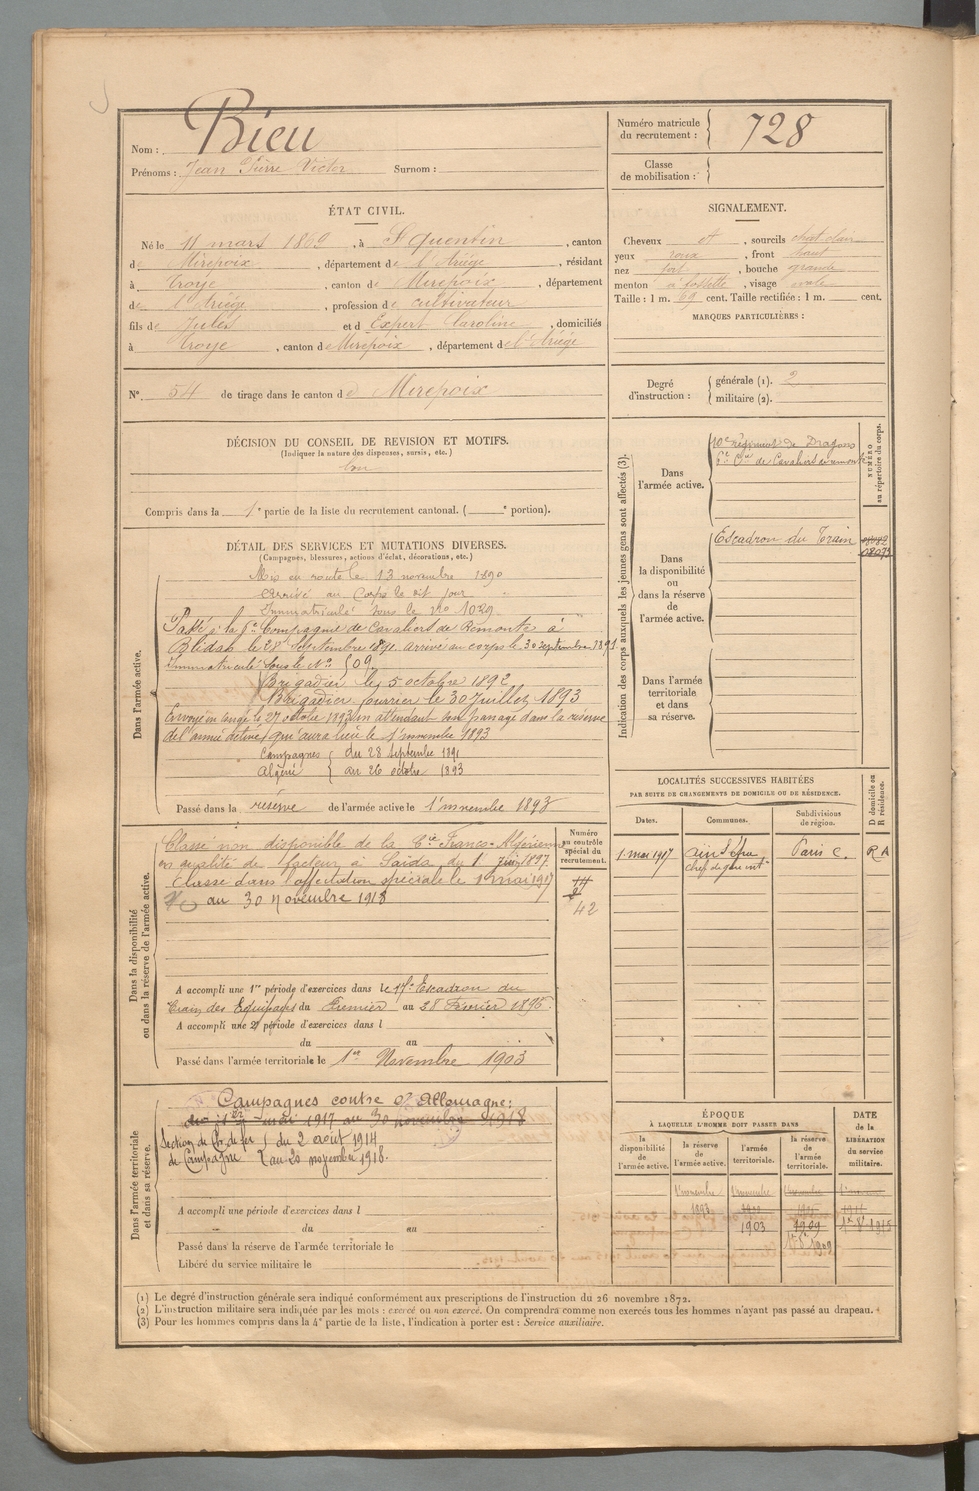 Nom : Bieu
Prénoms : Jean Pierre Victor Surnom :
Numéro matricule du recrutement : 728
Classe de mobilisation :
ÉTAT CIVIL.
Né le 11 mars 1869, à St Quentin, canton
de Mirepoix, département de l'Ariège, résidant
à Troye, canton de Mirepoix, département
de l'Ariège, profession de cultivateur
fils de Jules et d Expert Caroline, domiciliés
à Troye, canton de Mirepoix, département de l'Ariège
N° 54 de tirage dans le canton de Mirepoix
SIGNALEMENT.
Cheveux et, sourcils chat. clair
yeux roux, front haut
nez fort, bouche grande
menton à fossette, visage ovale
Taille : 1 m. 69 cent. Taille rectifiée : 1 m. cent.
MARQUES PARTICULIÈRES :
Degré d'instruction : générale (1). 2
militaire (2).
DÉCISION DU CONSEIL DE REVISION ET MOTIFS.
(Indiquer la nature des dispenses, sursis, etc.)
bon
Compris dans la 1e partie de la liste du recrutement cantonal. ( e portion).
DÉTAIL DES SERVICES ET MUTATIONS DIVERSES.
(Campagnes, blessures, actions d'éclat, décorations, etc.)
Dans l'armée active.
Mis en route le 13 novembre 1890
Arrivé au Corps le dit jour
Immatriculé sous le no 1029
Passé à la 6e Compagnie de Cavaliers de Remonte à
Blidah le 28 Septembre 1891 arrivé au corps le 30 septembre 1891
immatriculé sous le No 509
Brigadier le 5 octobre 1892
Brigadier fourrier le 30 Juillet 1893
Envoyé en congé le 27 octobre 1893 en attendant son passage dans la réserve
de l'armée active qui aura lieu le 1er novembre 1893
Campagnes du 28 Septembre 1891
Algérie au 26 octobre 1893
Passé dans la réserve de l'armée active le 1er novembre 1893
Indication des corps auxquels les jeunes gens sont affectés (3).
NUMÉRO au répertoire du corps.
Dans l'armée active.
10e régiment de Dragons
6e Cie de Cavaliers de remonte
Dans la disponibilité ou dans la réserve de l'armée active.
Escadron du Train
08073
Dans l'armée territoriale et dans sa réserve.
LOCALITÉS SUCCESSIVES HABITÉES
PAR SUITE DE CHANGEMENTS DE DOMICILE OU DE RÉSIDENCE.
Dates. Communes. Subdivisions de région. D domicile ou R résidence.
1 mai 1917 Aïn Sefra Paris C. R A
chef de gare
Dans la disponibilité ou dans la réserve de l'armée active.
Numéro au contrôle spécial du recrutement.
Classé non disponible de la Cie Franco-Algérienne
en qualité de facteur à Saïda du 1er Juin 1897
Classé dans l'affectation spéciale le 1er mai 1917
au 30 Novembre 1918
42
A accompli une 1re période d'exercices dans le 17e Escadron du
Train des Equipages du Premier au 28 Février 1896.
A accompli une 2e période d'exercices dans l
du au
Passé dans l'armée territoriale le 1er Novembre 1903
Dans l'armée territoriale et dans sa réserve.
Campagnes contre l'Allemagne :
du 1er mai 1917 au 30 novembre 1918
Section de Ch. de fer du 2 août 1914
de Campagne au 20 novembre 1918.
A accompli une période d'exercices dans l
du au
Passé dans la réserve de l'armée territoriale le
Libéré du service militaire le
ÉPOQUE
À LAQUELLE L'HOMME DOIT PASSER DANS
la disponibilité de l'armée active.
la réserve de l'armée active.
l'armée territoriale.
la réserve de l'armée territoriale.
DATE de la LIBÉRATION du service militaire.
1er novembre 1er novembre 1er novembre 1er novembre
1893
1903 1909 1er 8e 1915
1er 8e 1909
(1) Le degré d'instruction générale sera indiqué conformément aux prescriptions de l'instruction du 26 novembre 1872.
(2) L'instruction militaire sera indiquée par les mots : exercé ou non exercé. On comprendra comme non exercés tous les hommes n'ayant pas passé au drapeau.
(3) Pour les hommes compris dans la 4e partie de la liste, l'indication à porter est : Service auxiliaire.